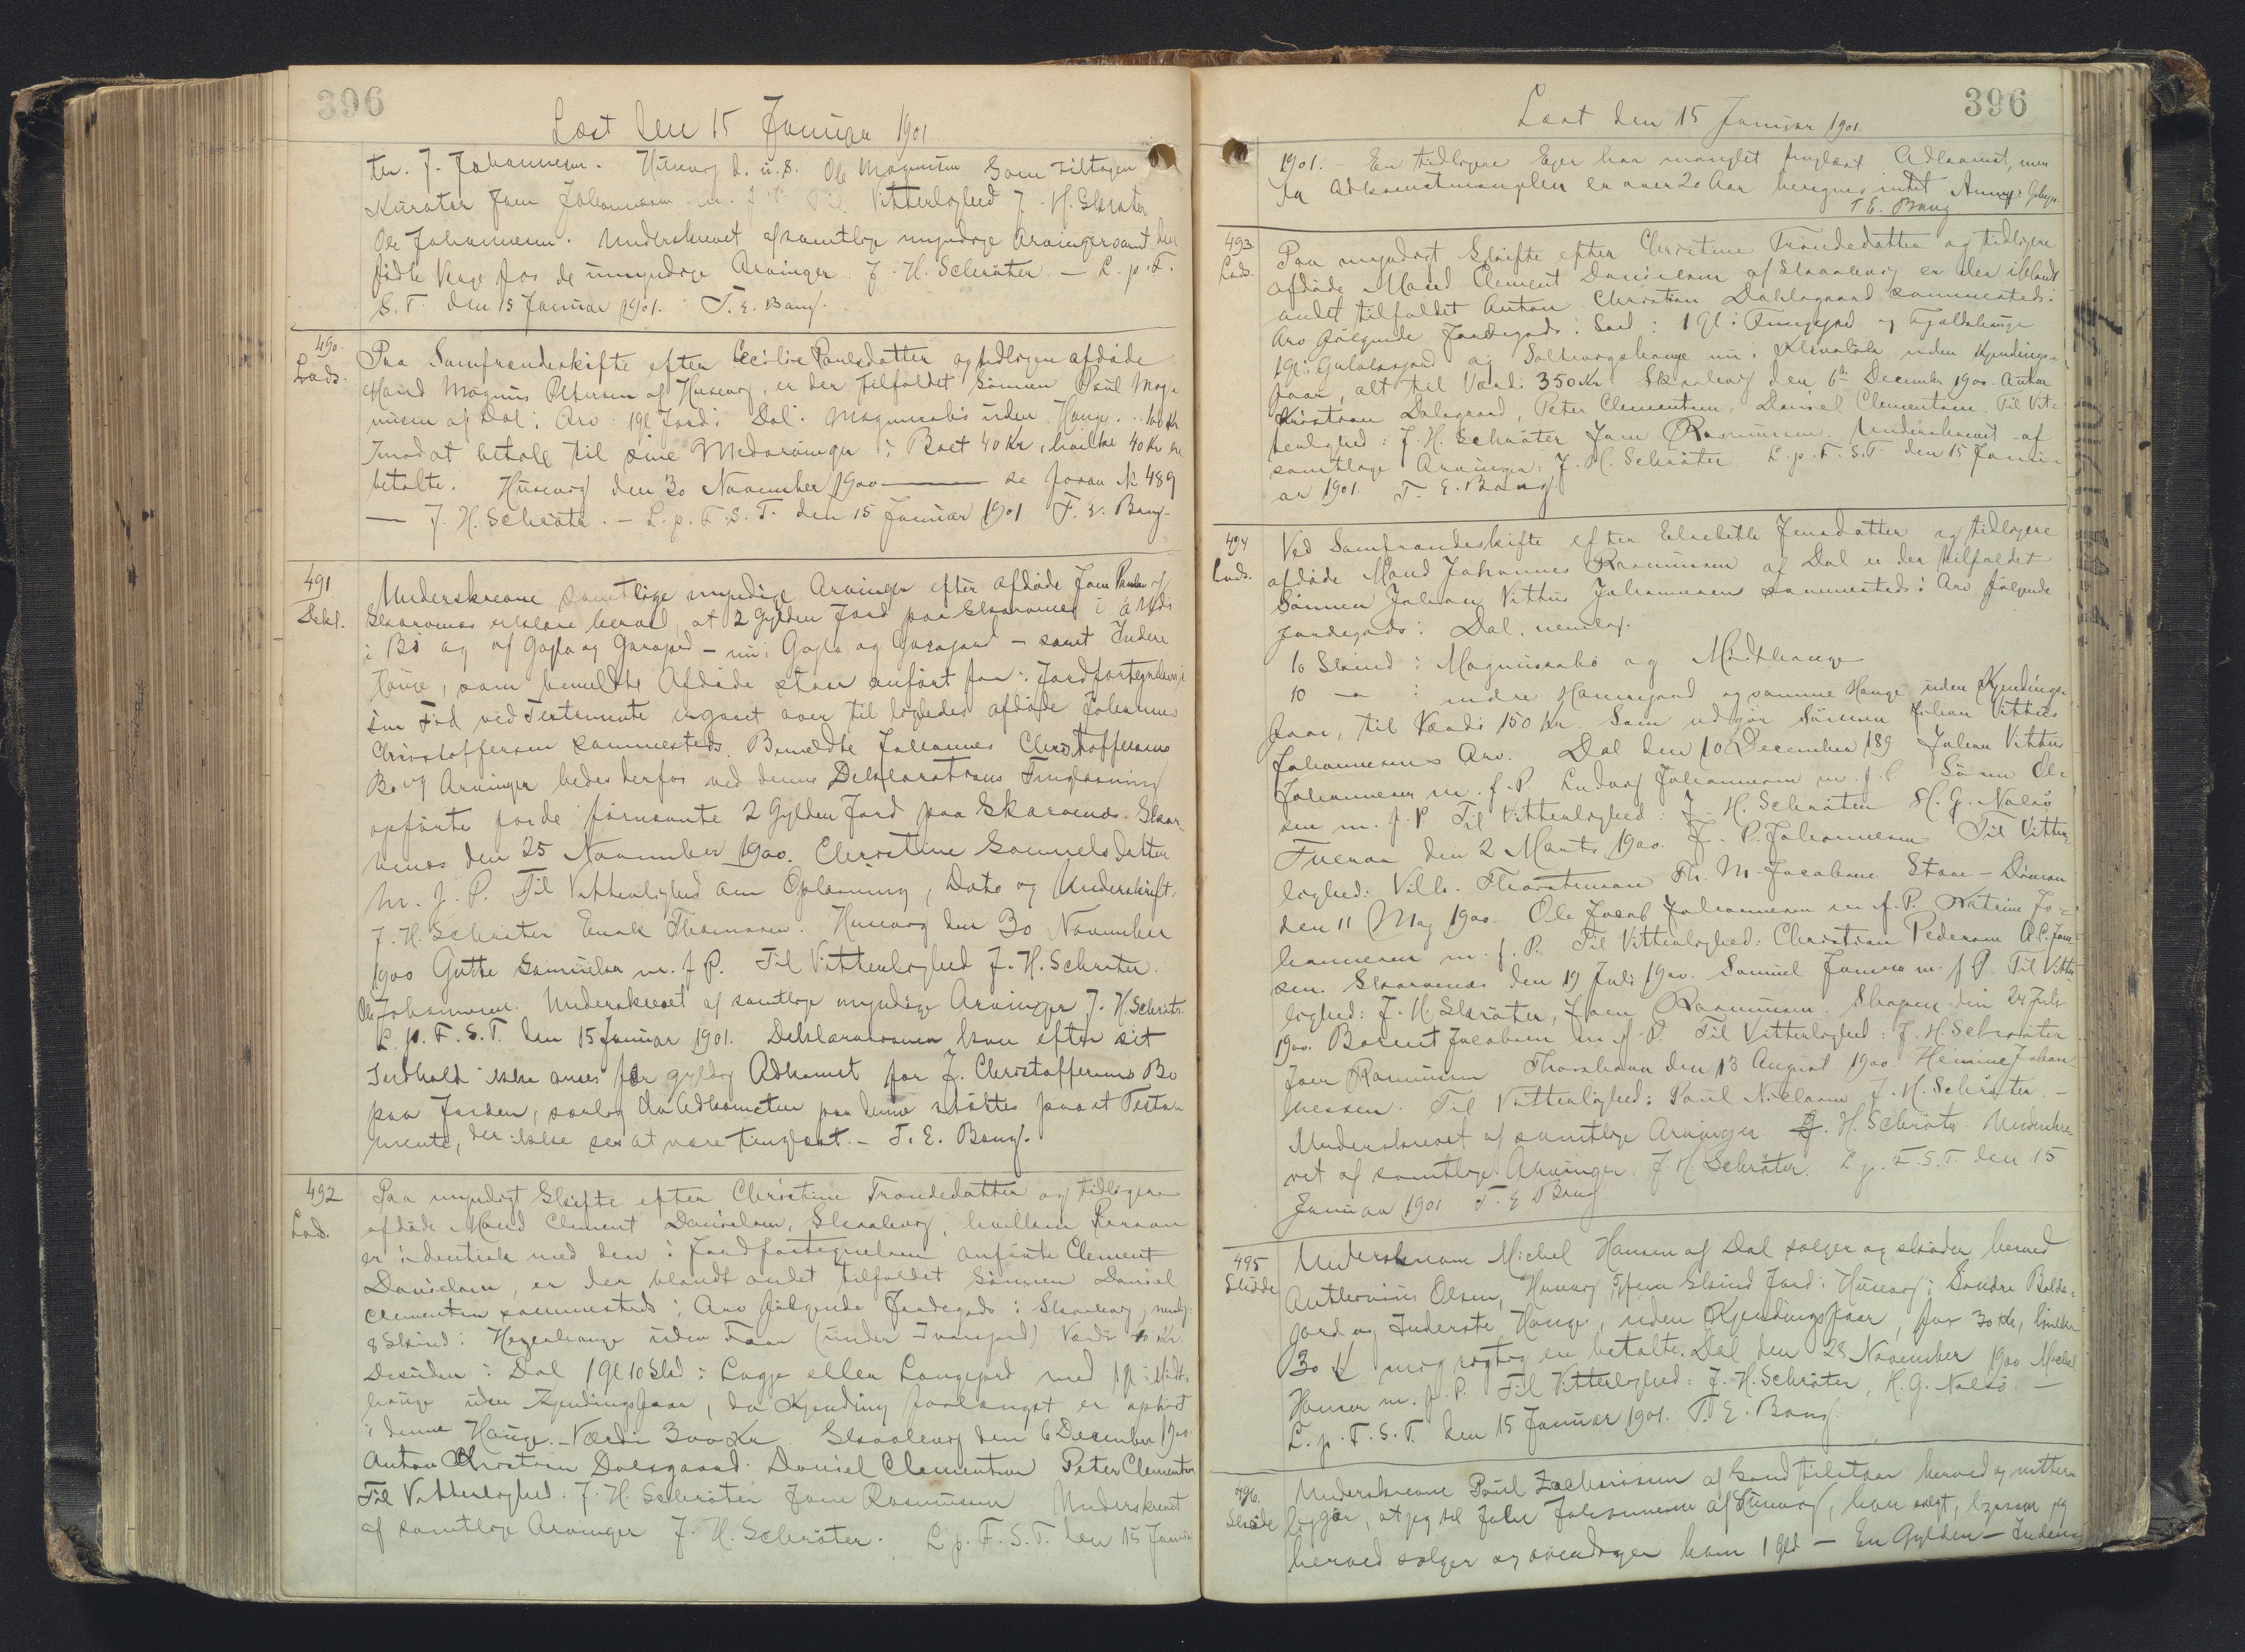 396
Læst den 15 Januar 1901
ter. J. Johannesen. Husevig d. u. S. Ole Magnusen Som Tiltagen
Kurator Joen Johannesen m. f. P. Til Vitterlighed J. H. Schrøter
Ole Johannesen. Underskrevet af samtlige myndige Arvinger samt den
fødte Værge for de umyndige Arvinger J. H. Schröter. — L. p. F.
S. T. den 15 Januar 1901. T. E. Bang.
490.
Lods.
Paa Samfrændeskifte efter Cecilie Poulsdatter og tidligere afdøde
Mand Magnus Petersen af Husevig, er der tilfaldet Sønnen Poul Mag-
nusen af Dal i Arv: 1 Gl Jord i Dal i Magnussabø uden Hauge .. 100 Kr
Imod at betale til sine Medarvinger i Boet 40 Kr, hvilke 40 Kr ere
betalte. Husevig den 30 November 1900 ——— se foran № 489
— J. H. Schröter. — L. p. F. S. T. den 15 Januar 1901 T. E. Bang.
491
Dekl.
Underskrevne samtlige myndige Arvinger efter afdøde Joen Poulsen af
Skarvenæs erklære herved, at 2 Gylden Jord paa Skarvenæs i
i Bø og af og — nu i og — samt Indere
Hauge, som bemeldte Afdøde staar anført for i Jordfortegnelsen, i
sin Tid ved Testamente er gaaet over til ligeledes afdøde Johannes
Christoffersen sammesteds. Bemeldte Johannes Christoffersens
Bo og Arvinger bedes derfor ved denne Deklarations Tinglæsning
opførte for de fornævnte 2 Gylden Jord paa Skarvenæs. Skar-
venæs den 25 November 1900. Christine Samuelsdatter
M. f. P. Til Vitterlighed om Oplæsning, Dato og Underskrift.
J. H. Schröter Enok Thomasen. Husevig den 30 November
1900 Gutte Samuelsen m. f P. Til Vitterlighed J. H. Schröter.
Ole Johannesen. Underskrevet af samtlige myndige Arvinger J. H. Schröter.
L. p. F. S. T. den 15 Januar 1901. Deklarationen kan efter sit
Indhold ikke anses for gyldig Adkomst for J. Christoffersens Bo
paa Jorden, saalig da Adkomsten paa denne støttes paa et Testa-
mente, der ikke ses at være tinglæst. — T. E. Bang.
492
Lod.
Paa myndigt Skifte efter Christine Trondedatter og tidligere
afdøde Mand Clement Danielsen, Skaalevig, hvilken Person
er identisk med den i Jordfortegnelsen anførte Clement
Danielsen, er der blandt andet tilfaldet Sønnen Daniel
Clementsen sammesteds i Arv følgende Jordegods i Skaalevig, nemlig:
8 Skind i uden Faar (under ) Værdi Kr.
Desuden i Dal 1 Gl 10 Skd i eller med 1 Gl i Midt-
hauge uden Kjendingsfaar, da Kjending forlængst er ophørt
i denne Hauge. — Værdi 300 Kr. Skaalevig den 6 December 1900
Anton Christian Dalsgaard Daniel Clementsen Peter Clementsen
Til Vitterlighed J. H. Schröter Joen Rasmussen Underskrevet
af samtlige Arvinger J. H. Schröter. L. p. F. S. T. den 15 Januar
396
Læst den 15 Januar 1901.
1901. — En tidligere Ejer har manglet tinglæst Adkomst, men
da Adkomstmanglen er over 20 Aar beregnes intet
T E. Bang
493.
Lods.
Paa myndigt Skifte efter Christine Trondedatter og tidligere
afdøde Mand Clement Danielsen af Skaalevig er der iblandt
andet tilfaldet Anton Christian Dahlsgaard sammesteds i
Arv følgende Jordegods i Sand: 1 Gl i og
1 Gl i og nu uden Kjendings-
faar, alt til Værdi 350 Kr. Skaalevig den 6te December 1900. Anton
Kristian Dalsgaard, Peter Clementsen, Daniel Clementsen. Til Vit-
terlighed: J. H. Schröter Joen Rasmussen. Underskrevet af
samtlige Arvinger. J. H. Schröter L. p. F. S. T. den 15 Janu-
ar 1901. T. E. Bang.
494
Lods.
Ved Samfrændeskifte efter Elsebeth Jensdatter og tidligere
afdøde Mand Johannes Rasmussen af Dal er der tilfaldet
Sønnen Johan Vitthus Johannesen sammesteds i Arv følgende
Jordegods i Dal, nemlig:
10 Skind i Magnussabø og Midthauge
10 — i indre og samme Hauge uden Kjendings-
faar, til Værdi 150 Kr. Som udgør Sønnen Johan Vitthus
Johannesens Arv. Dal den 10 December 189 Johan Vitthus
Johannesen m. f. P Ludvig Johannesen m. f. P. Søren Ol-
sen m. f. P Til Vitterlighed: J. H. Schröter H. G. Nolsø
Tveraa den 2 Marts 1900. J. P. Johannesen Til Vitter-
lighed: Vilh. Thorsteinsson Th. M. Jacobsen
den 11 Maj 1900. Ole Jacob Johannesen m. f. P. Katrine Jo-
hannesen m. f. P. Til Vitterlighed: Christian Pedersen
sen. Skarvenæs den 19 Juli 1900. Samuel Joensen m. f P. Til Vitter-
lighed: J. H. Skrøter, Joen Rasmussen. Skopen den 24 Juli
1900. Berent Jacobsen m. f. P. Til Vitterlighed: J. H. Schrøter
Joen Rasmussen Thorshavn den 13 August 1900. Johan-
nessen. Til Vitterlighed: Poul Nielsen J. H. Schröter. —
Underskrevet af samtlige Arvinger J. H. Schröter. Underskre-
vet af samtlige Arvinger. J. H. Schröter. L. p. F. S. T. den 15
Januar 1901 T. E Bang
495
Skøde
Underskrevne Michel Hansen af Dal sælger og skøder herved
Olsen, Husevig Skind Jord i Husevig i Søndre
jord og Inderste Hauge, uden Kjendingsfaar, for 30 Kr, hvilke
30 Kr mig rigtig ere betalte. Dal den 28 November 1900 Michel
Hansen m. f. P. Til Vitterlighed: J. H. Schröter, H. G. Nolsø. —
L. p. F. S. T. den 15 Januar 1901. T. E. Bang.
496.
Skøde
Underskrevne Poul Zachariasen af Sand tilstaar herved og vitter-
liggør, at jeg til Johannesen af Husevig, har solgt, ligesom jeg
herved sælger og overdrager ham 1 Gld — En Gylden —